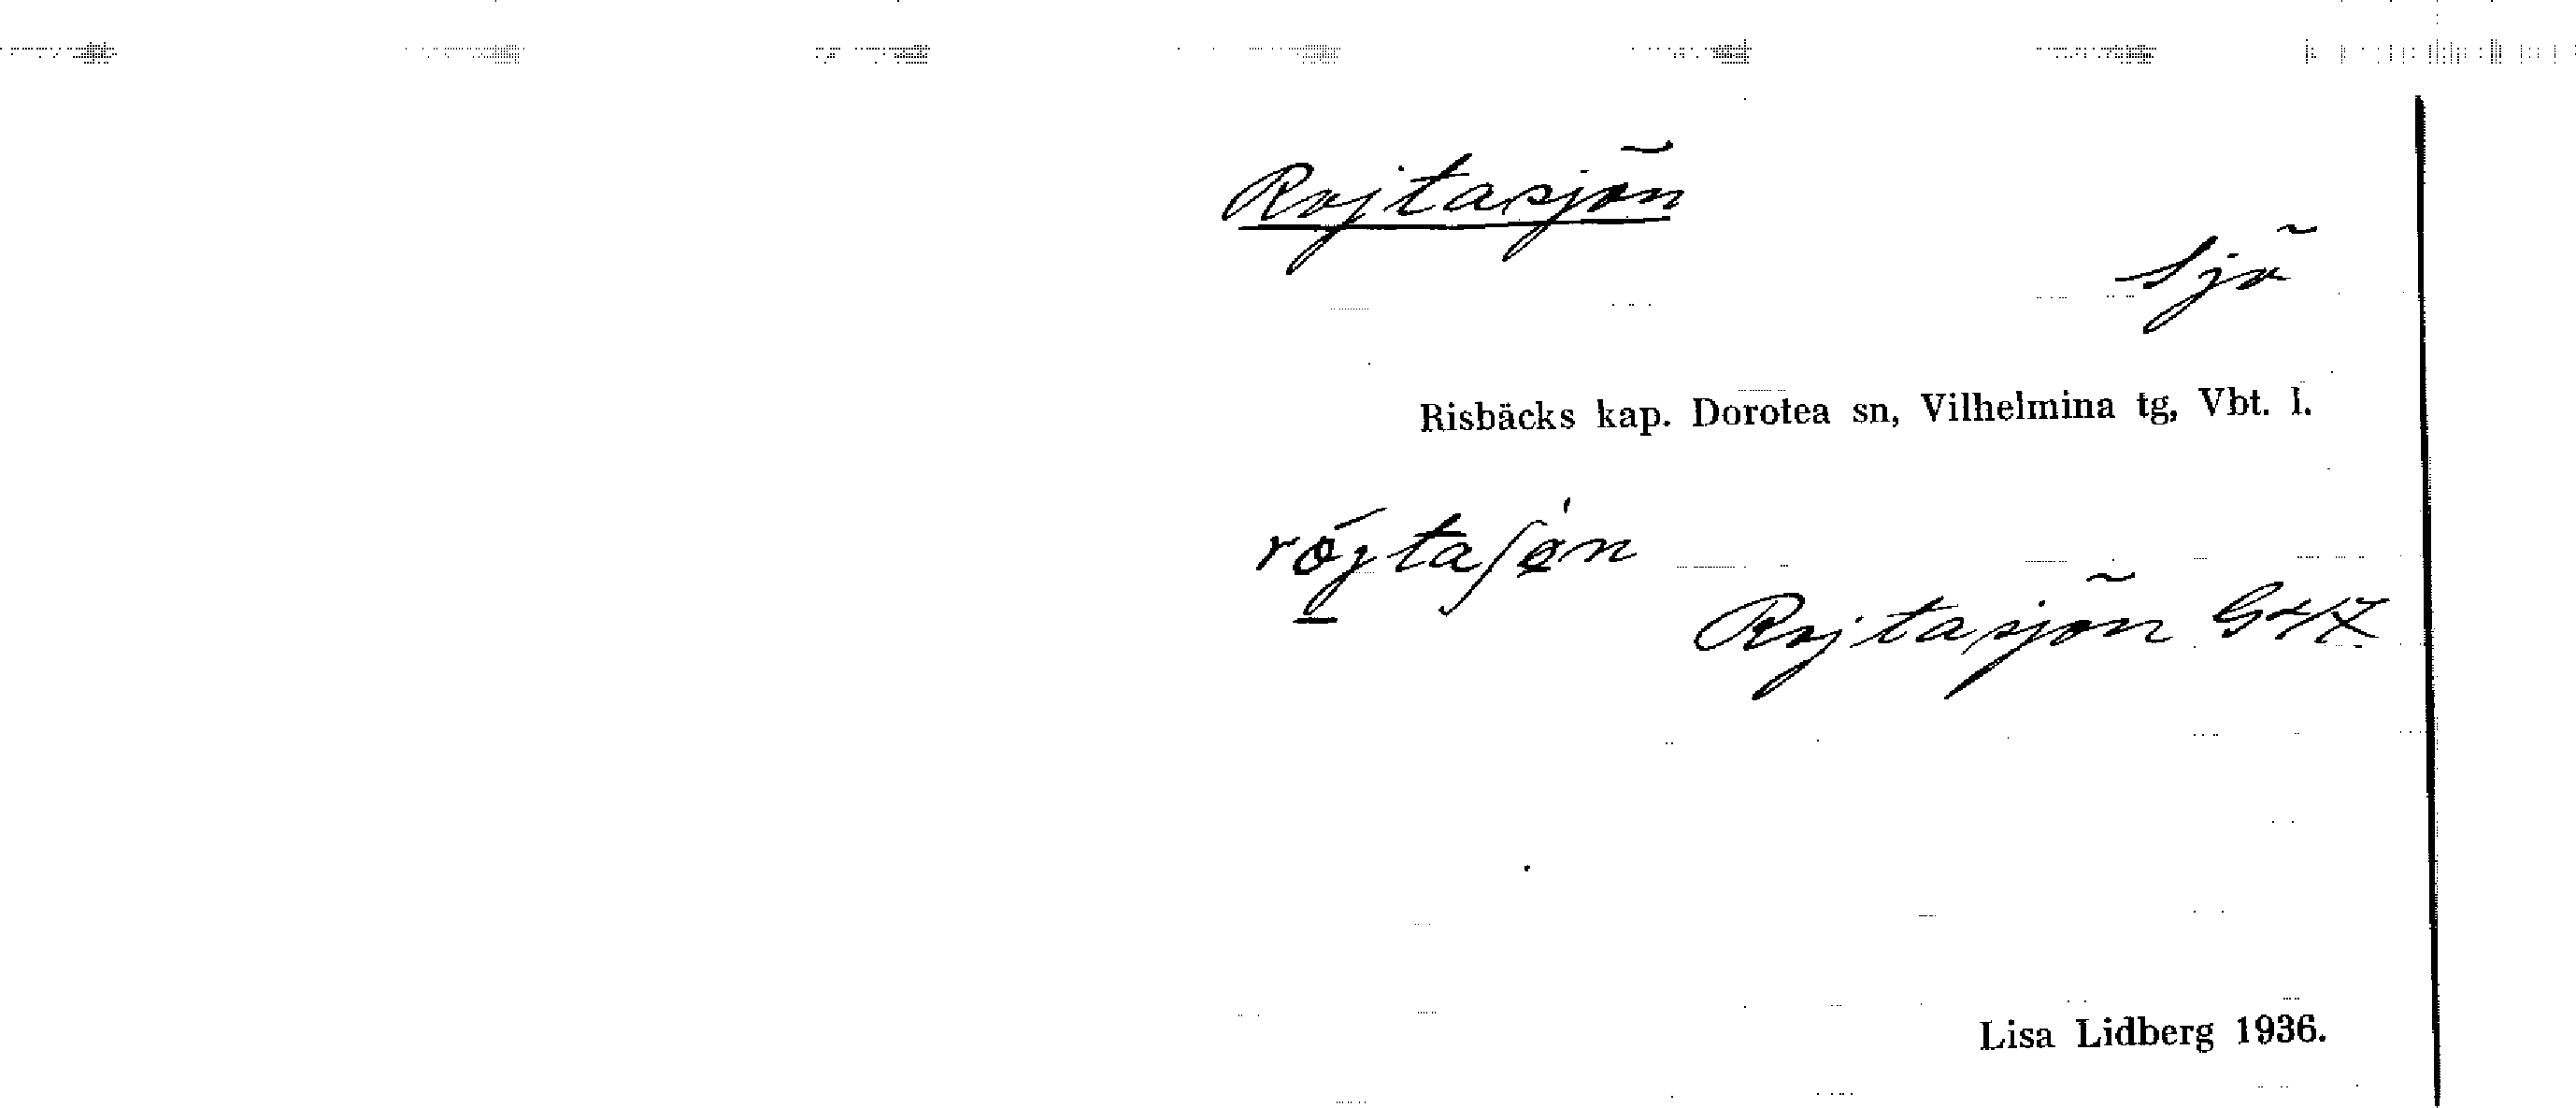 Rojtasjön
Sjö
Risbäcks kap. Dorotea sn, Vilhelmina tg, Vbt. l.
Rojtasjön G47
Lisa Lidberg 1936.